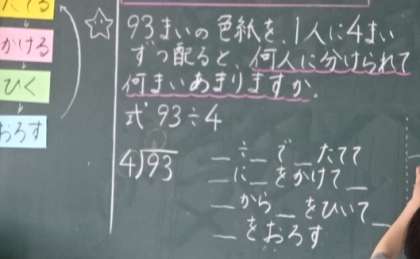 たてる
かける
ひく
おろす
93まいの色紙を、1人に4まい
ずつ配ると、何人に分けられて
何まいあまりますか。
式 93÷4
4)93
_÷_で_たてて
_に_をかけて_
_から_をひいて_
_をおろす